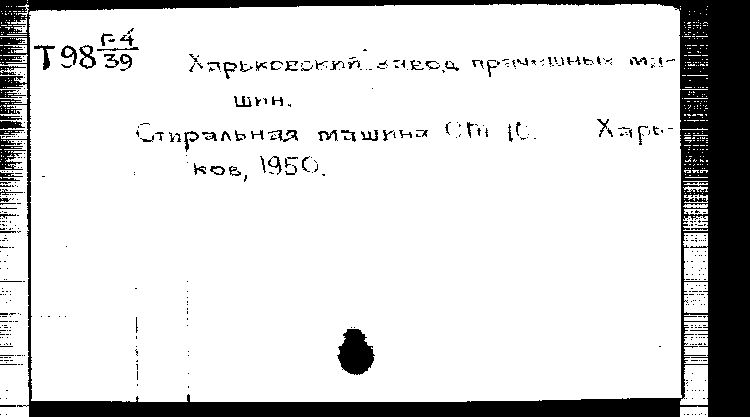 Т98 Г-4/39
Харьковский завод прачешных ма-
шин.
Стиральная машина СТ 10. Харь-
ков, 1950.